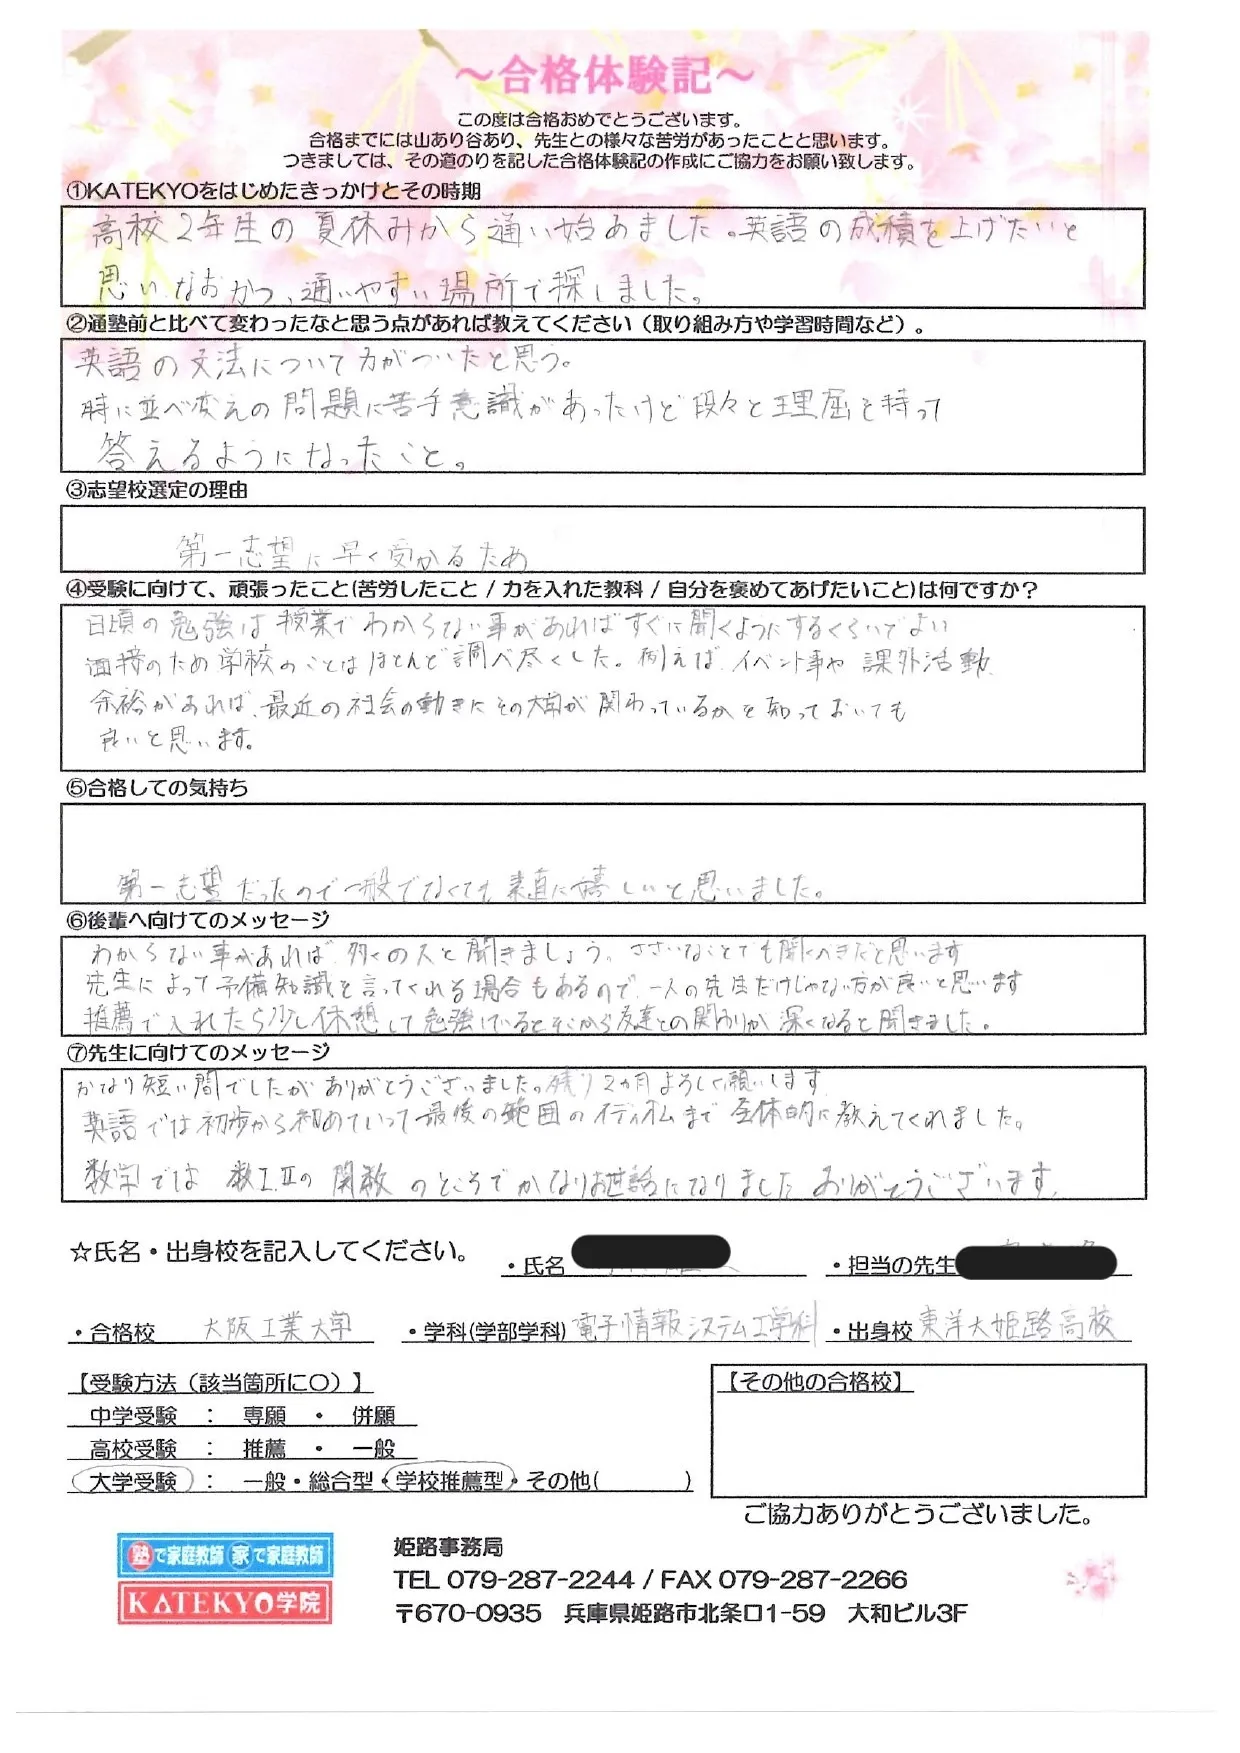 ～合格体験記～
この度は合格おめでとうございます。
合格までには山あり谷あり、先生との様々な苦労があったことと思います。
つきましては、その道のりを記した合格体験記の作成にご協力をお願い致します。
①KATEKYOをはじめたきっかけとその時期
高校2年生の夏休みから通い始めました。英語の成績を上げたいと
思い、なおかつ、通いやすい場所で探しました。
②通塾前と比べて変わったなと思う点があれば教えてください（取り組み方や学習時間など）。
英語の文法について力がついたと思う。
特に並べ変えの問題に苦手意識があったけど段々と理屈を持って
答えるようになったこと。
③志望校選定の理由
第一志望に早く受かるため
④受験に向けて、頑張ったこと(苦労したこと / 力を入れた教科 / 自分を褒めてあげたいこと)は何ですか？
日頃の勉強は授業でわからない事があればすぐに聞くようにするくらいでよい
面接のため学校のことはほとんど調べ尽くした。例えば、イベント事や課外活動
余裕があれば、最近の社会の動きにその大学が関わっているかを知っておいても
良いと思います。
⑤合格しての気持ち
第一志望だったので一般でなくても素直に嬉しいと思いました。
⑥後輩へ向けてのメッセージ
わからない事があれば、多くの人と聞きましょう。ささいなことでも聞くべきだと思います
先生によって予備知識を言ってくれる場合もあるので、一人の先生だけじゃない方が良いと思います
推薦で入れたら少し休憩して勉強しているとそこから友達との関わりが深くなると聞きました。
⑦先生に向けてのメッセージ
かなり短い間でしたがありがとうございました。残り2ヵ月よろしく願いします
英語では初歩から初めていって最後の範囲のイディオムまで全体的に教えてくれました。
数学では数Ⅰ.Ⅱの関数のところでかなりお世話になりましたありがとうございます。
☆氏名・出身校を記入してください。
・氏名
・担当の先生
・合格校 大阪工業大学 ・学科(学部学科) 電子情報システム工学科 ・出身校 東洋大姫路高校
【受験方法（該当箇所に〇）】
中学受験 ： 専願 ・ 併願
高校受験 ： 推薦 ・ 一般
大学受験 ： 一般・総合型・学校推薦型・その他( )
【その他の合格校】
ご協力ありがとうございました。
塾で家庭教師 家で家庭教師
KATEKYO学院
姫路事務局
TEL 079-287-2244 / FAX 079-287-2266
〒670-0935 兵庫県姫路市北条口1-59 大和ビル3F